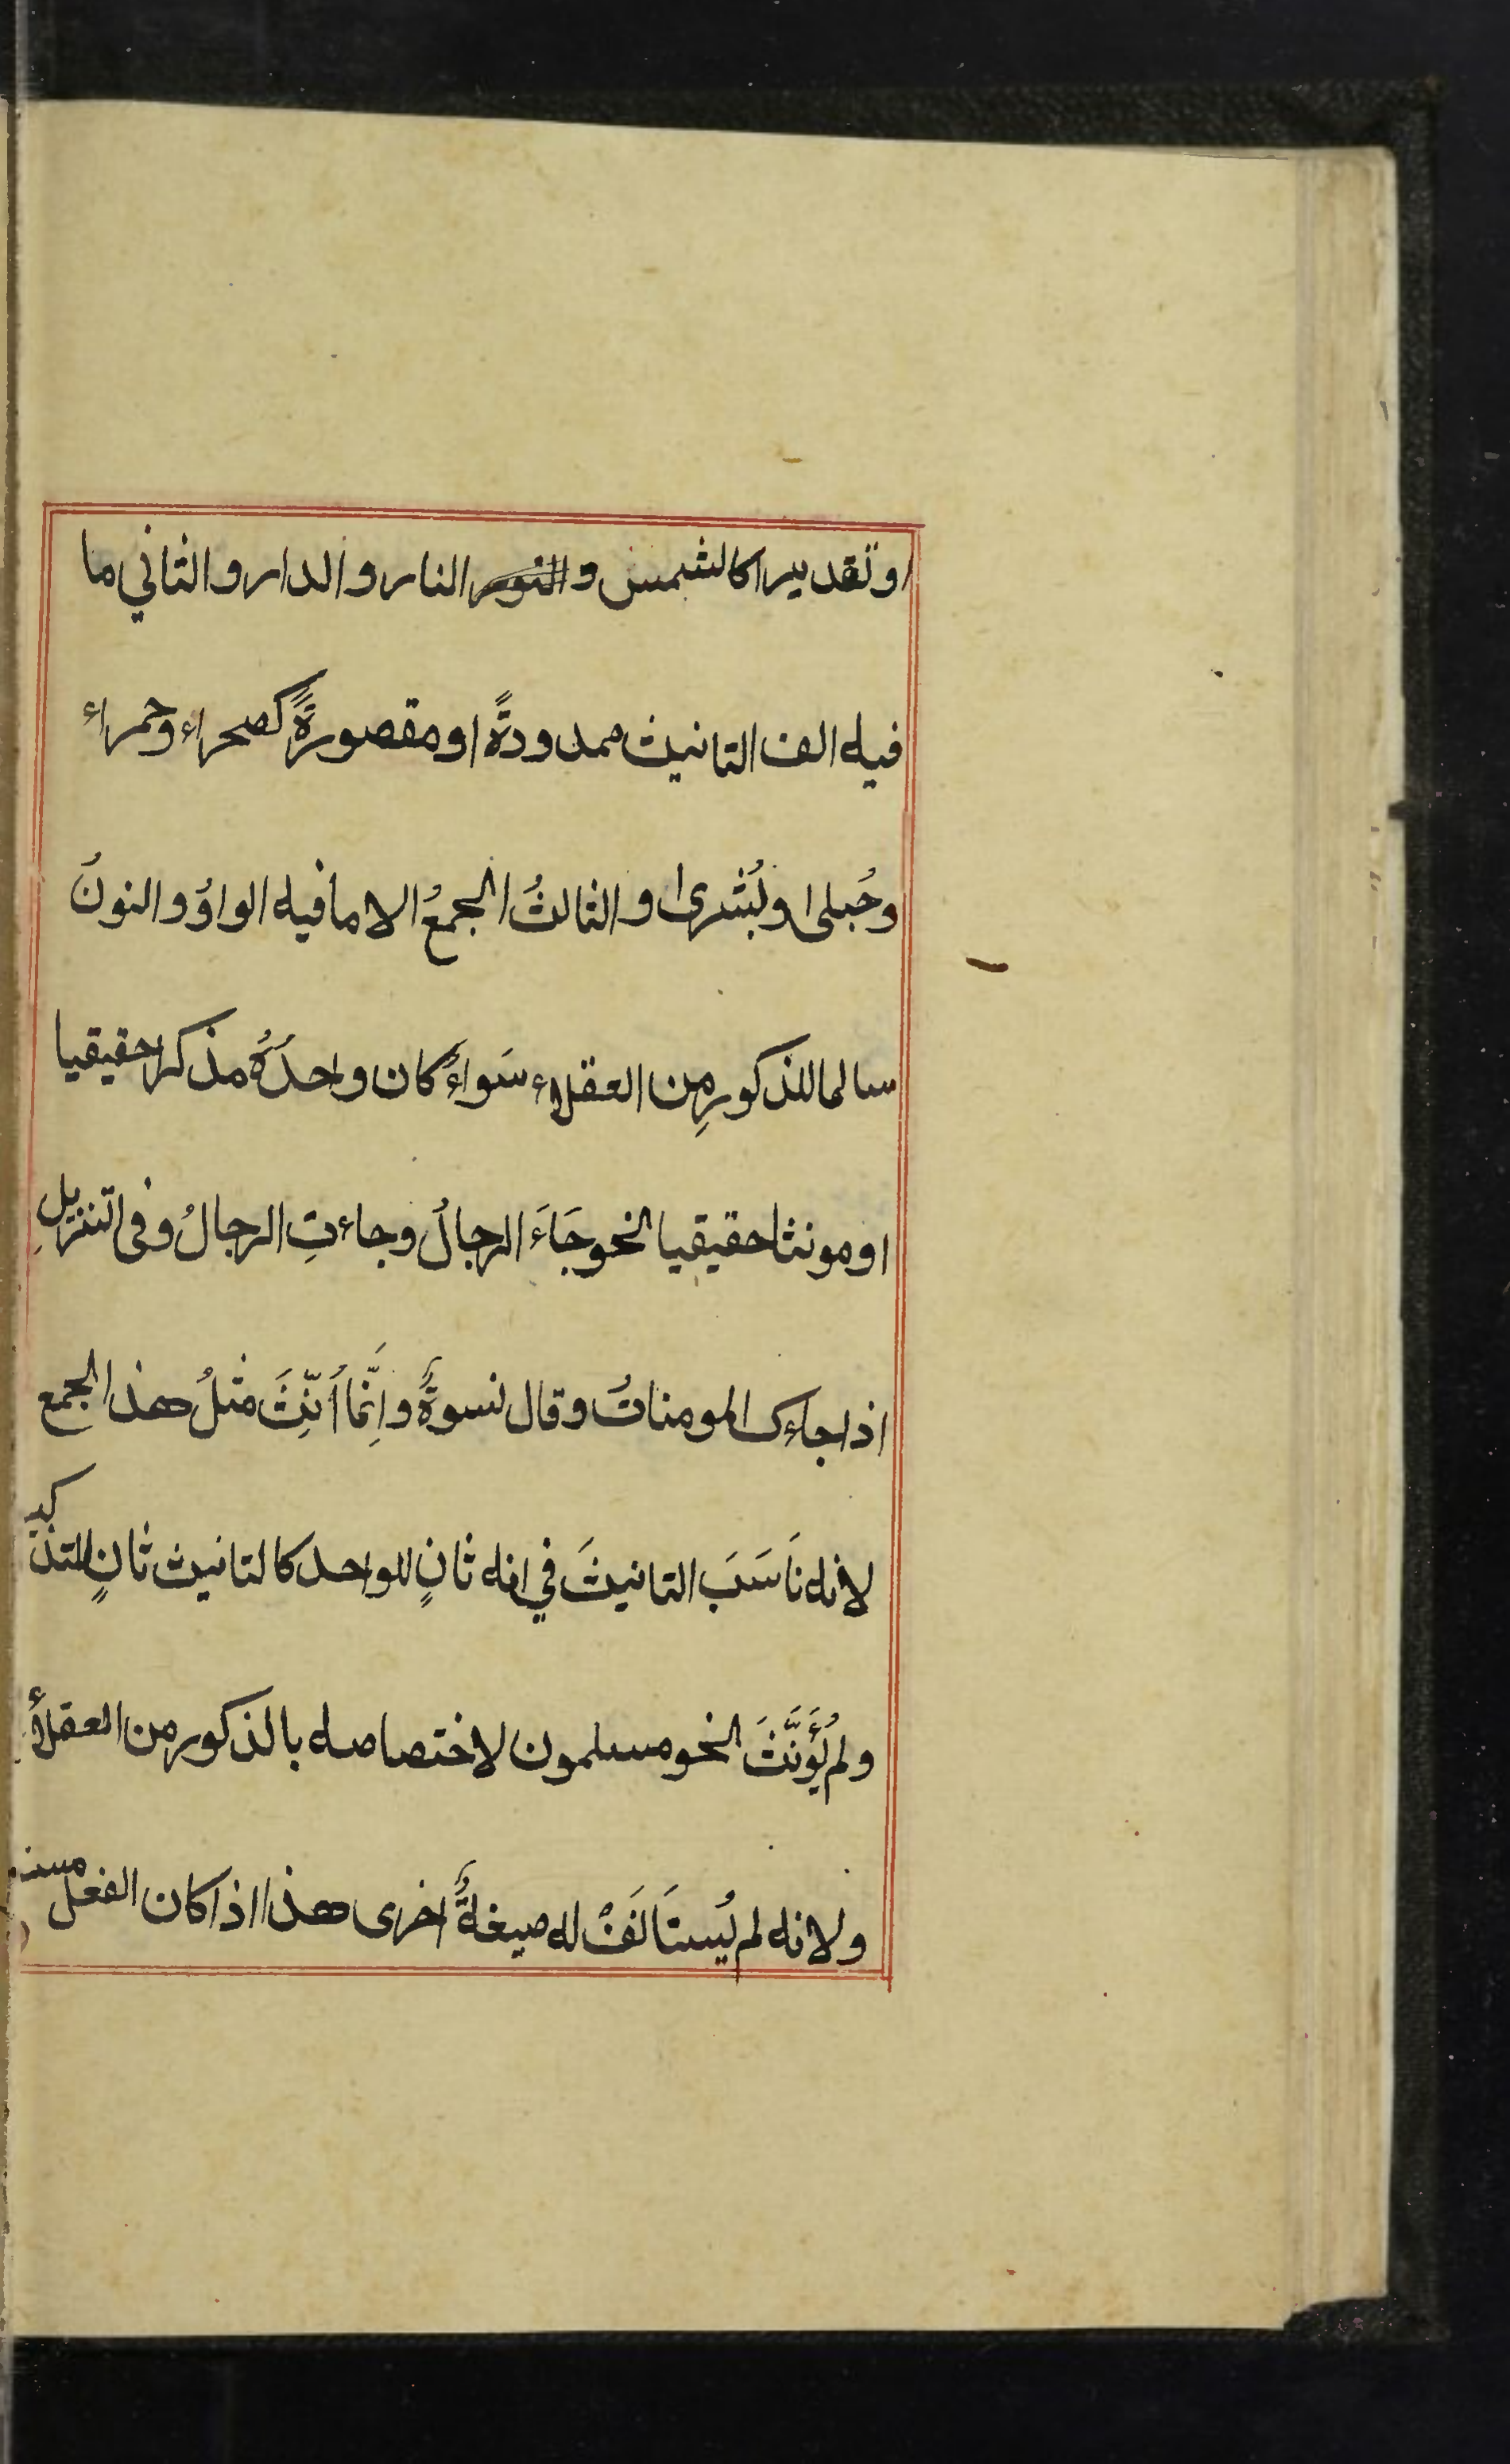 او تقديرا كالشمس و النار والدار والثاني ما
فيه الف التانيث ممدودةً او مقصورةً كصحراء وحمراء
وحُبلى او بُشرى والثالثُ الجمعُ الا ما فيه الواوُ والنونُ
سالما للذكورِ مِن العقلاء سَواءٌ كان واحدُهُ مذكرا حقيقيا
او مونثا حقيقيا نحو جَاءَ الرجالُ وجاءتِ الرجالُ وفى التنزيلِ
اذا جاءك المومناتُ وقال نسوةٌ وإنَّما أُنِّثَ مثلُ هذا الجمع
لانه نَاسَبَ التانيثَ في انه ثانٍ للواحد كالتانيث ثانٍ للتذكير
ولم يُؤَنَّثَ نحو مسلمون لاختصاصه بالذكور من العقلاء
ولانه لم يُستَانَفْ له صيغةٌ اخرى هذا اذا كان الفعل